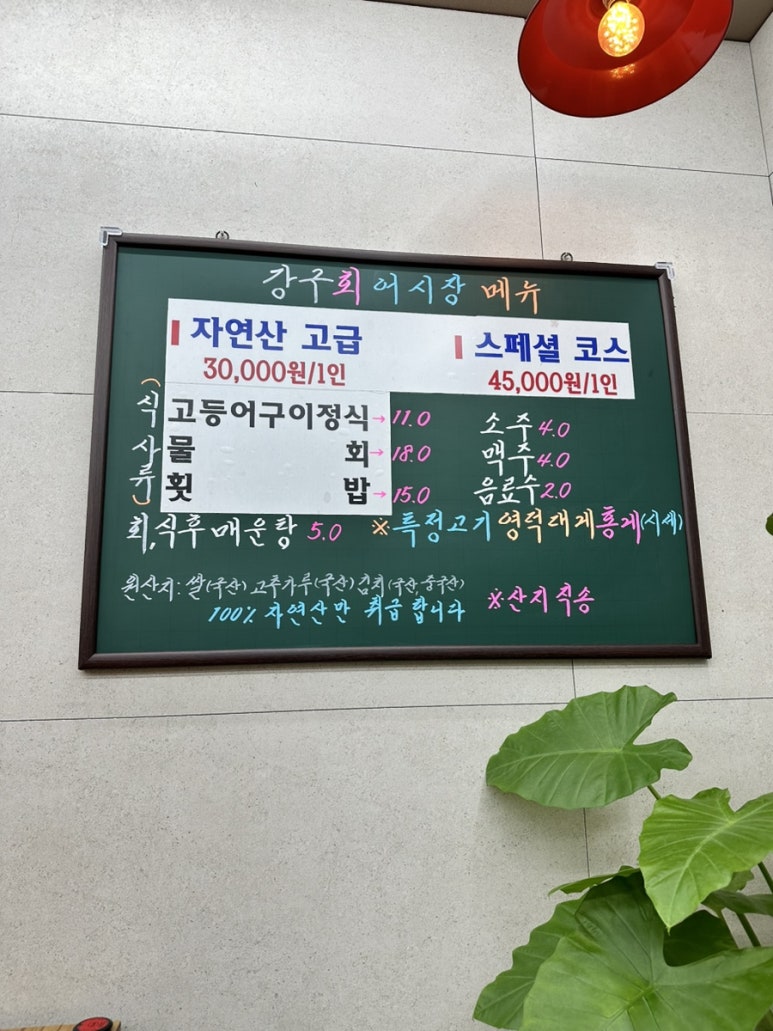 강구회어시장 메뉴
자연산 고급
30,000원/1인
스페셜 코스
45,000원/1인
(식사류)
고등어구이정식 → 11.0
물 회 → 18.0
횟 밥 → 15.0
소주 4.0
맥주 4.0
음료수 2.0
회,식후 매운탕 5.0
※특정고기 영덕대게홍게(시세)
원산지: 쌀(국산) 고추가루(국산) 김치(국산, 중국산)
100% 자연산만 취급합니다
※산지직송